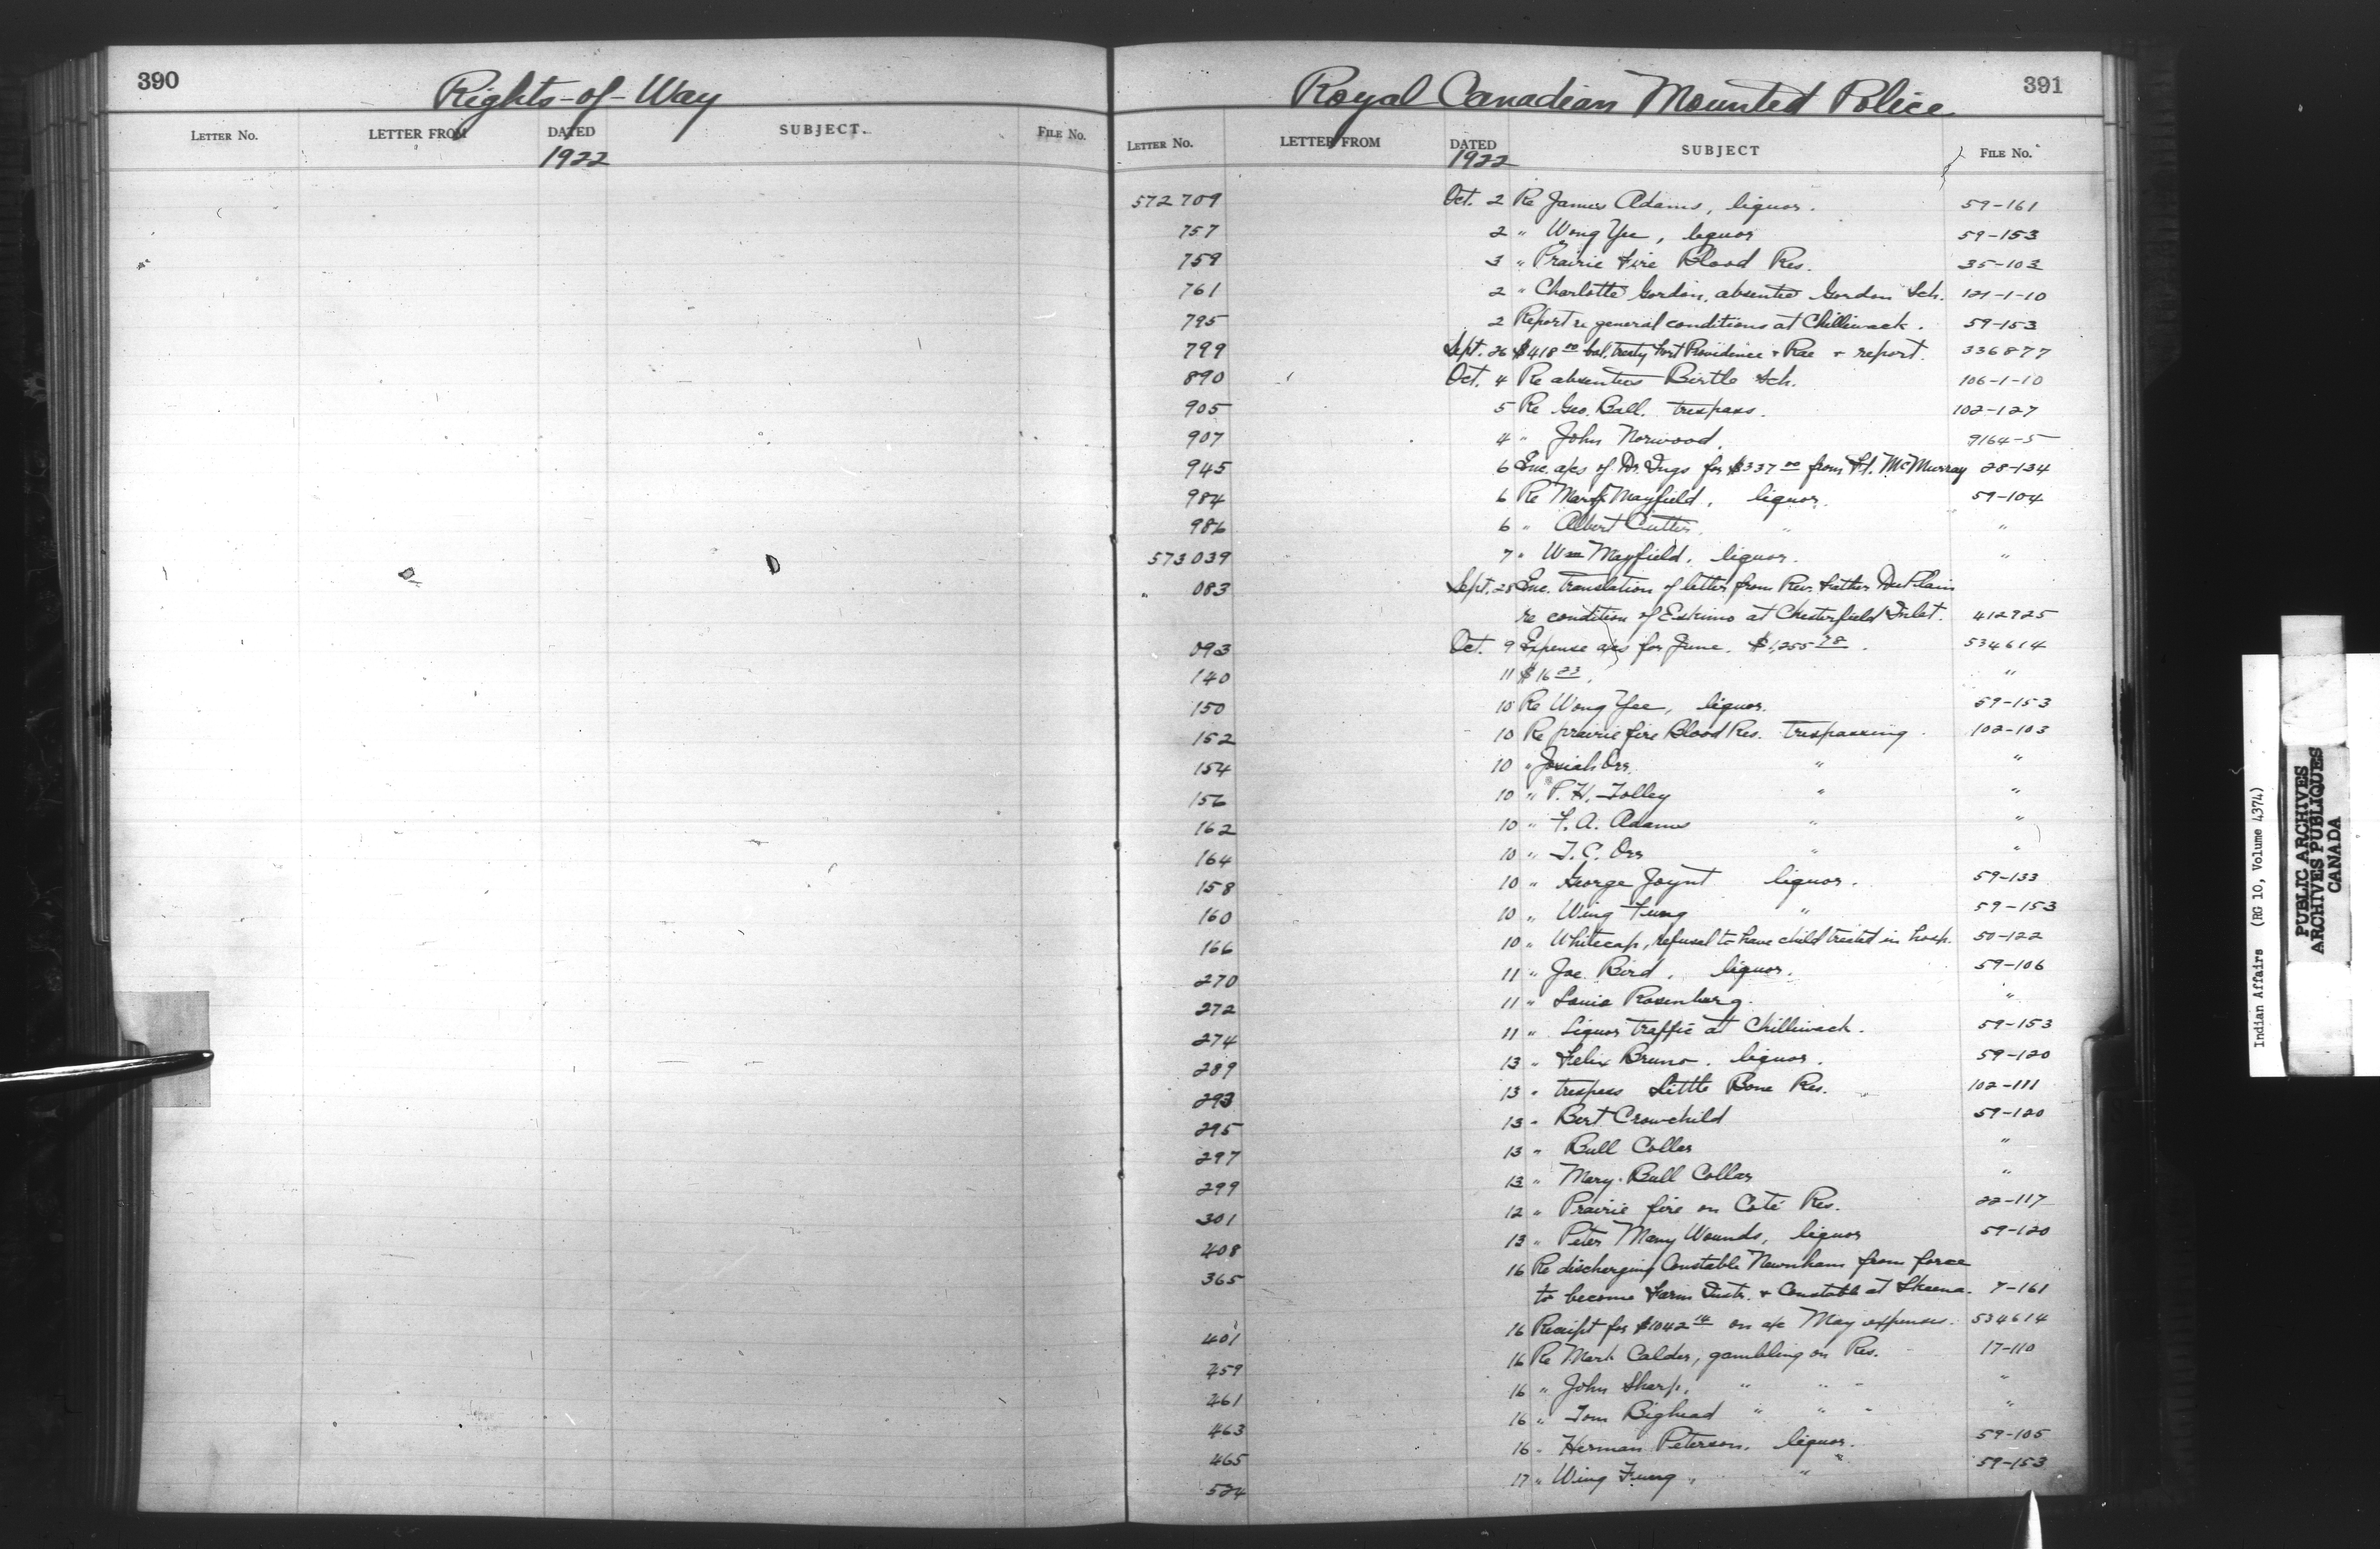 390
Rights-of-Way
LETTER No. LETTER FROM DATED SUBJECT. FILE No.
1922
Royal Canadian Mounted Police
391
LETTER No. LETTER FROM DATED SUBJECT FILE No.
1922
572709 Oct. 2 Re James Adams, liquor. 59-161
757 2 " Wong Yee, liquor 59-153
759 3 " Prairie Fire Blood Res. 35-103
761 2 " Charlotte Gordon, absentee Gordon Sch. 121-1-10
795 2 Report re general conditions at Chilliwack. 59-153
799 Sept. 26 $418 00 bal. treaty Fort Providence & Rae & report. 336877
890 Oct. 4 Re absentees Birtle Sch. 106-1-10
905 5 Re Geo. Ball. trespass. 102-127
907 4 " John Norwood. 9164-5
945 6 Enc. a/cs of Dr. for $337 00 from Ft. McMurray 28-134
984 6 Re Mayfield, liquor. 59-104
986 6 " Albert " "
573039 7 " Wm Mayfield, liquor. "
" 083 Sept. 28 Enc. translation of letter from Rev. Father DuPlain
re condition of Eskimo at Chesterfield Inlet. 412925
093 Oct. 9 Expense a/cs for June. $1,255 78. 534614
140 11 $16 23. "
150 10 Re Wong Yee, liquor. 59-153
152 10 Re prairie fire Blood Res. trespassing. 102-103
154 10 " Josiah Orr " "
156 10 " P. H. Tolley " "
162 10 " F. A. Adams " "
164 10 " T. C. Orr " "
158 10 " George Joynt liquor. 59-133
160 10 " Wing Fung " 59-153
166 10 " Whitecap, refusal to have child treated in hosp. 50-122
270 11 " Joe Bird, liquor. 59-106
272 11 " Louis Rosenburg. "
274 11 " Liquor traffic at Chilliwack. 59-153
289 13 " Felix Bruno. liquor. 59-120
293 13 " trespass Little Bone Res. 102-111
295 13 " Bert Crowchild 59-120
297 13 " Bull Collar "
299 13 " Mary Bull Collar "
301 12 " Prairie fire on Coté Res. 22-117
408 13 " Peter Many Wounds, liquor 59-120
365 16 Re discharging Constable Newnham from force
to become Farm Instr. & Constable at Skeena. 7-161
401 16 Receipt for $1042 14 on a/c May expenses. 534614
459 16 Re Mark Calder, gambling on Res. 17-110
461 16 " John Sharp, " " " "
463 16 " Tom Bighead " " " "
465 16 " Herman Peterson, liquor. 59-105
524 17 " Wing Fung, " 59-153
Indian Affairs (RG 10, Volume 4374)
PUBLIC ARCHIVES
ARCHIVES PUBLIQUES
CANADA